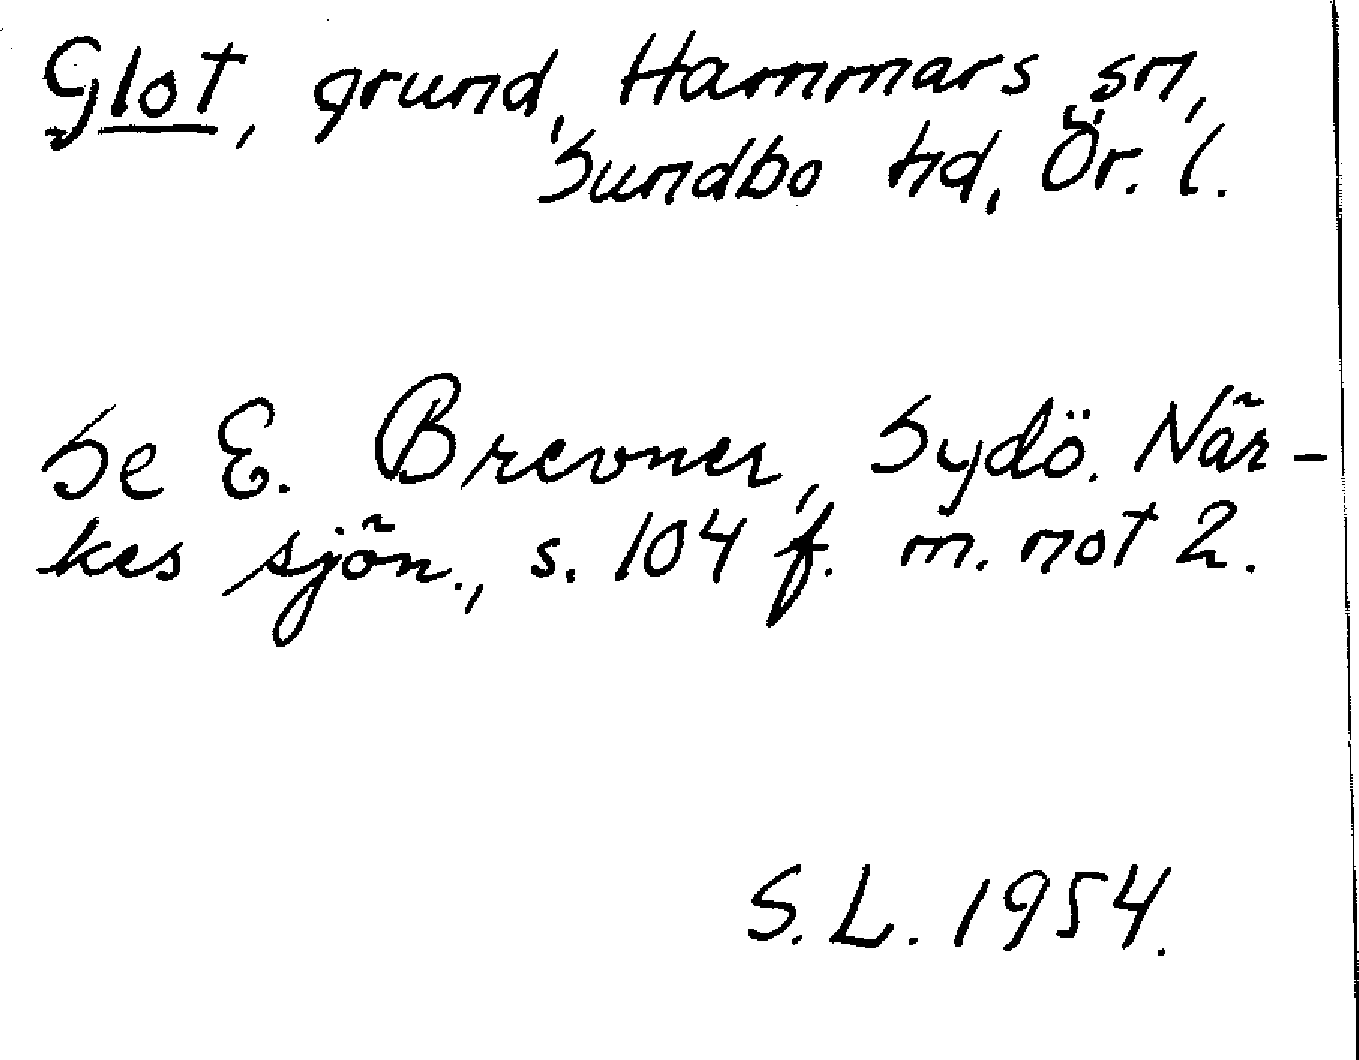 Glot, grund, Hammars sn,
Sundbo hd, Ör. l.
Se E. Brevner, Sydö. När-
kes sjön., s. 104 f. m. not 2.
S.L. 1954.